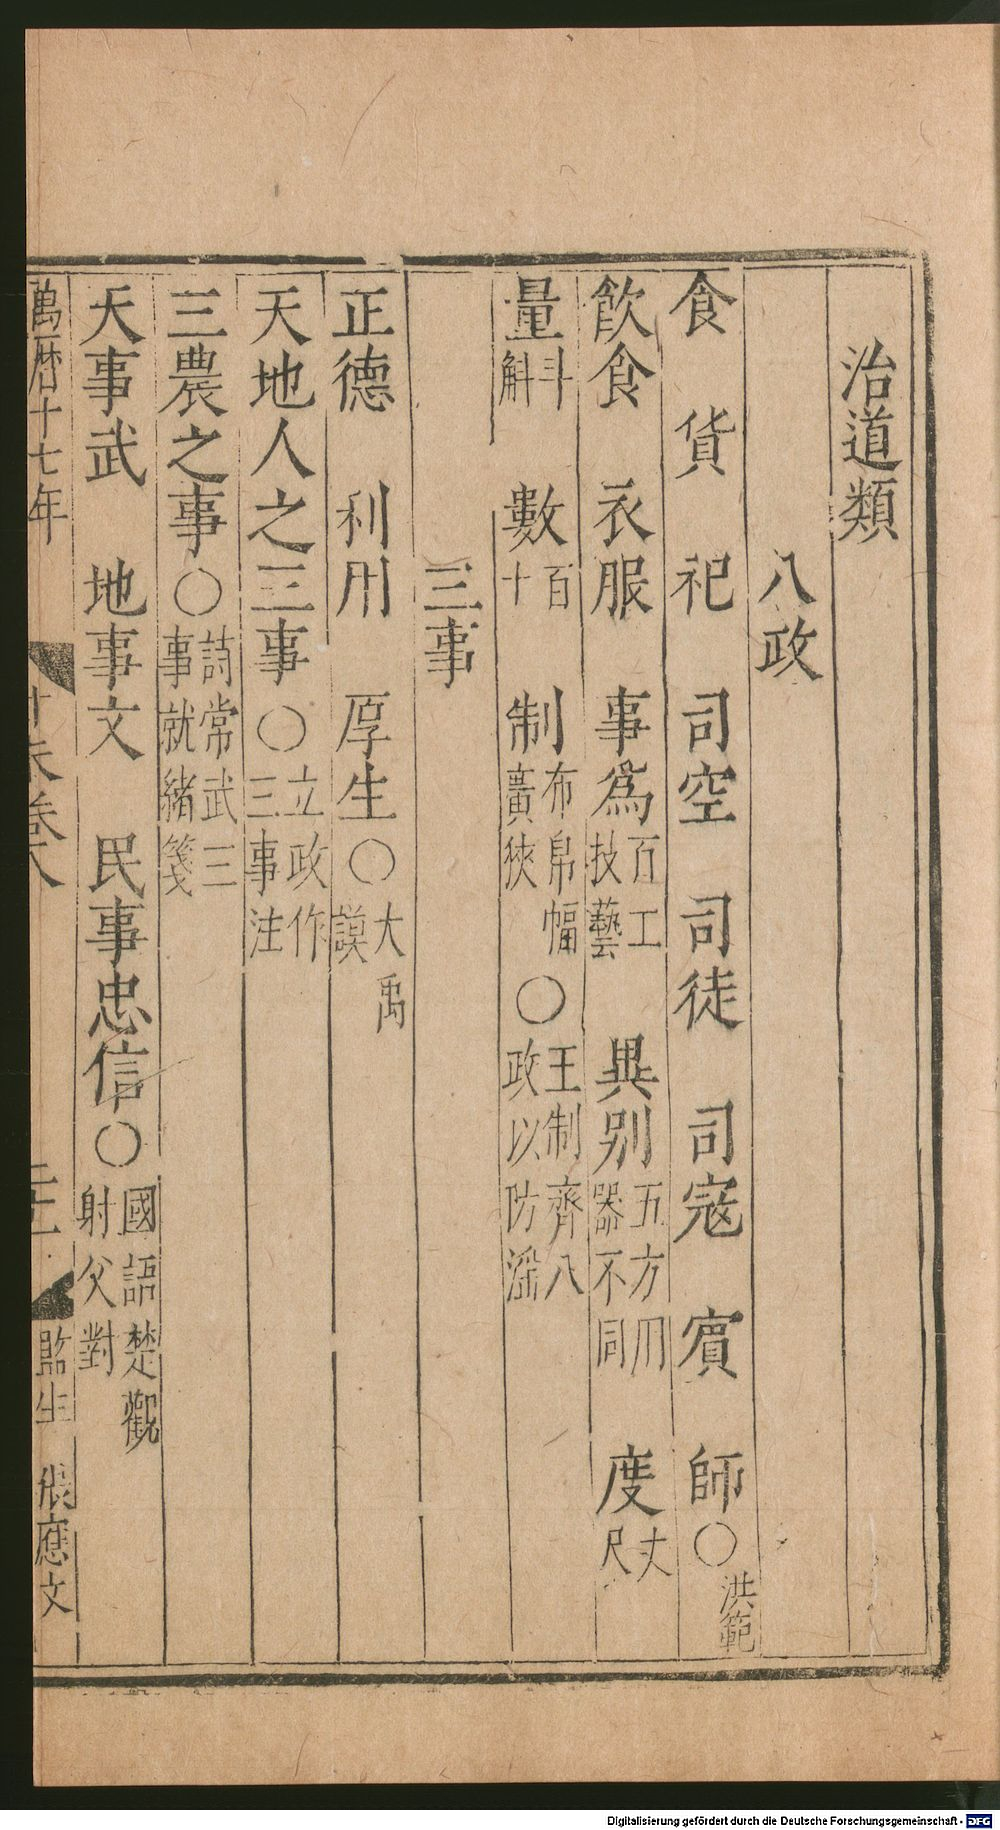 治道類
八政
食 貨 祀 司空 司徒 司寇 賓 師〇洪範
飲食 衣服 事為百工技藝 異別五方用器不同 度丈尺
量斗斛 數百十 制布帛幅廣狹〇王制齊八政以防淫
三事
正德 利用 厚生〇大禹謨
天地人之三事〇立政作三事注
三農之事〇詩常武三事就緒箋
天事武 地事文 民事忠信〇國語楚觀射父對
萬曆十七年
卷八
監生 張應文
Digitalisierung gefördert durch die Deutsche Forschungsgemeinschaft - DFG